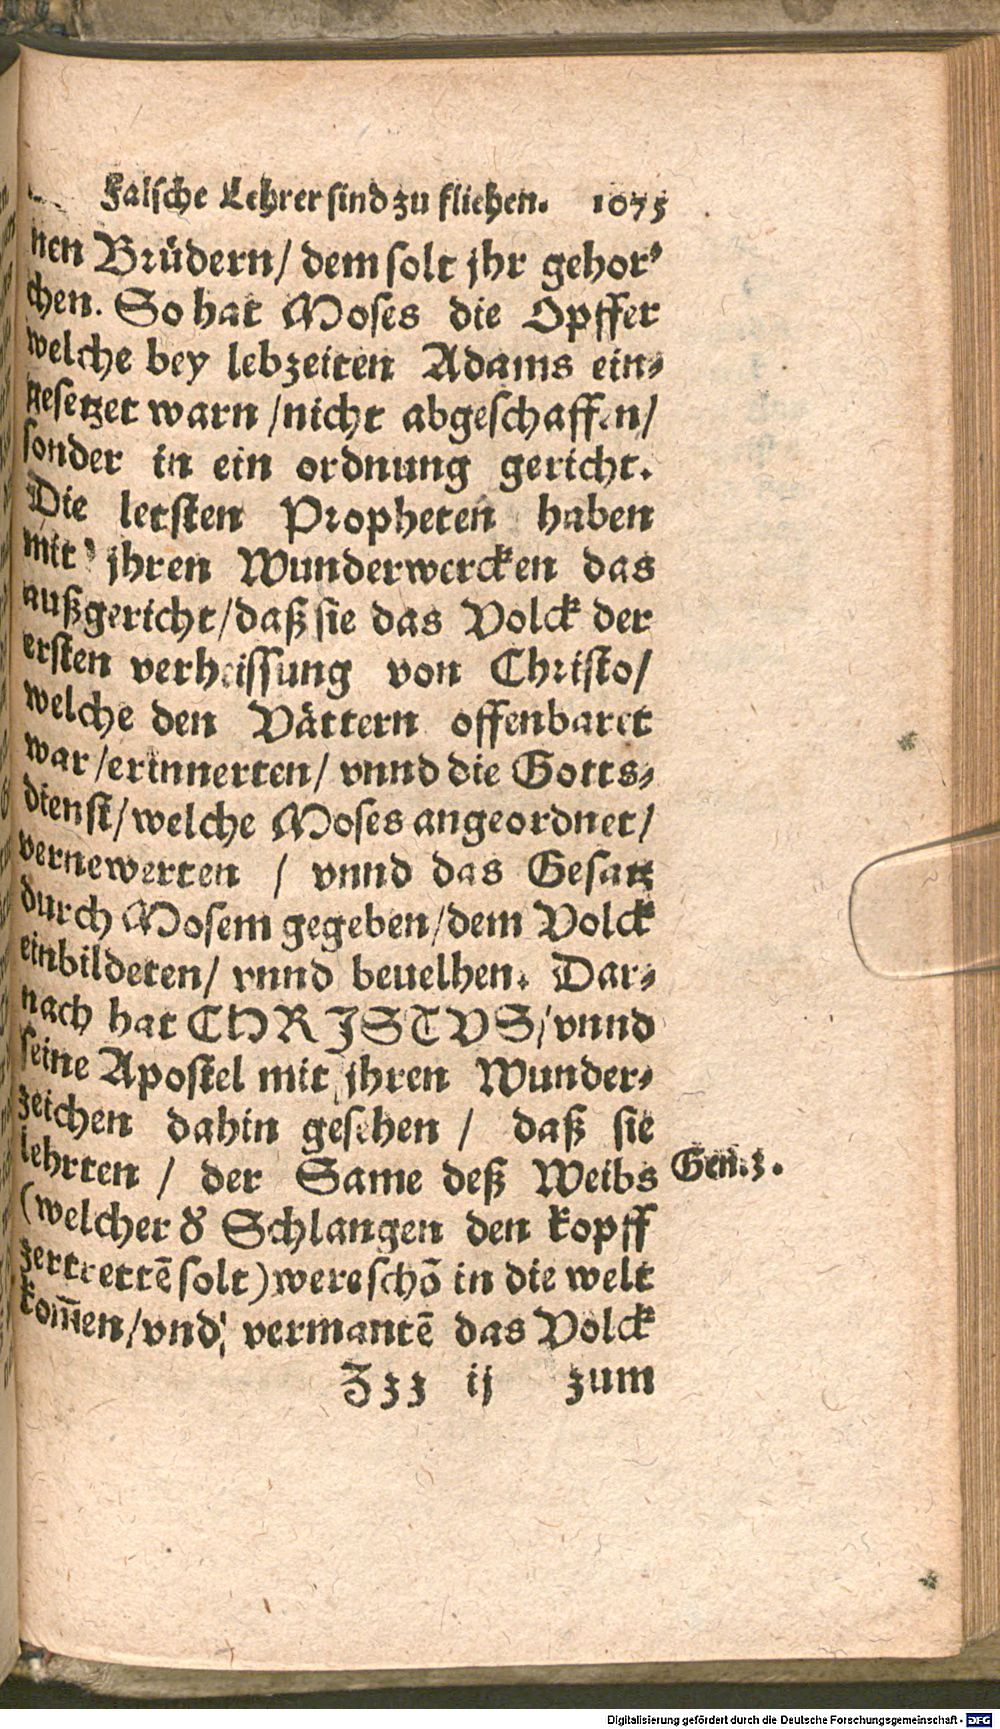 Falsche Lehrer sind zu fliehen. 1075
nen Brüdern/ dem solt jhr gehor-
chen. So hat Moses die Opffer
welche bey lebzeiten Adams ein-
gesetzet warn /nicht abgeschaffen/
sonder in ein ordnung gericht.
Die letsten Propheten haben
mit jhren Wunderwercken das
außgericht/daß sie das Volck der
ersten verheissung von Christo/
welche den Vättern offenbaret
war/erinnerten/ vnnd die Gotts-
dienst/welche Moses angeordnet/
vernewerten / vnnd das Gesatz
durch Mosem gegeben/dem Volck
einbildeten/ vnnd beuelhen. Dar-
nach hat CHRISTVS/vnnd
seine Apostel mit jhren Wunder-
zeichen dahin gesehen / daß sie
lehrten / der Same deß Weibs
Gen. 3.
(welcher d̕ Schlangen den kopff
zertrettē solt) were schõ in die welt
kom̃en/vnd vermantē das Volck
Zzz ij zum
Digitalisierung gefördert durch die Deutsche Forschungsgemeinschaft - DFG